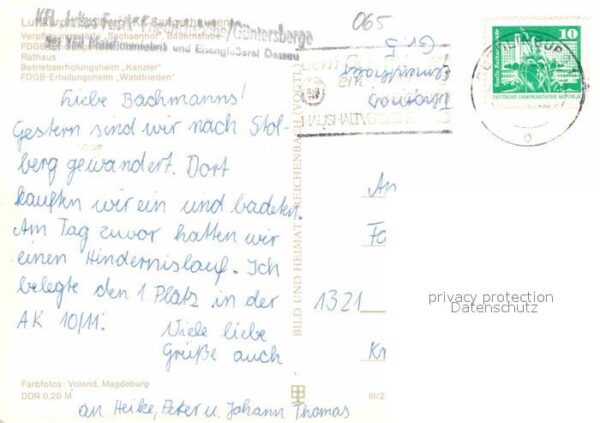 Luftkurort Stolberg Kr. Sangerhausen
Verpflegungsstätte "Sachsenhof" Bäderstube
FDGB-
Rathaus
Betriebserholungsheim „Kanzler"
FDGB-Erholungsheim "Waldfrieden"
KFL Julius Fucik Friedrichshöhe/Güntersberge
der VEB Maschinenfabrik und Eisengießerei Dessau
065
Liebe Bachmanns!
Gestern sind wir nach Stol-
berg gewandert. Dort
kauften wir ein und badeten.
Am Tag zuvor hatten wir
einen Hindernislauf. Ich
belegte den 1. Platz in der
AK 10/11. Viele liebe
Grüße auch
an Heike, Peter u. Johann Thomas
Farbfotos: Voland, Magdeburg
DDR 0,20 M
III/2
BILD UND HEIMAT REICHENBACH (VOGTL
HAUSHALT
10
DEUTSCHE DEMOKRATISCHE REPUBLIK
An
Fa
1321
Kr
privacy protection
Datenschutz